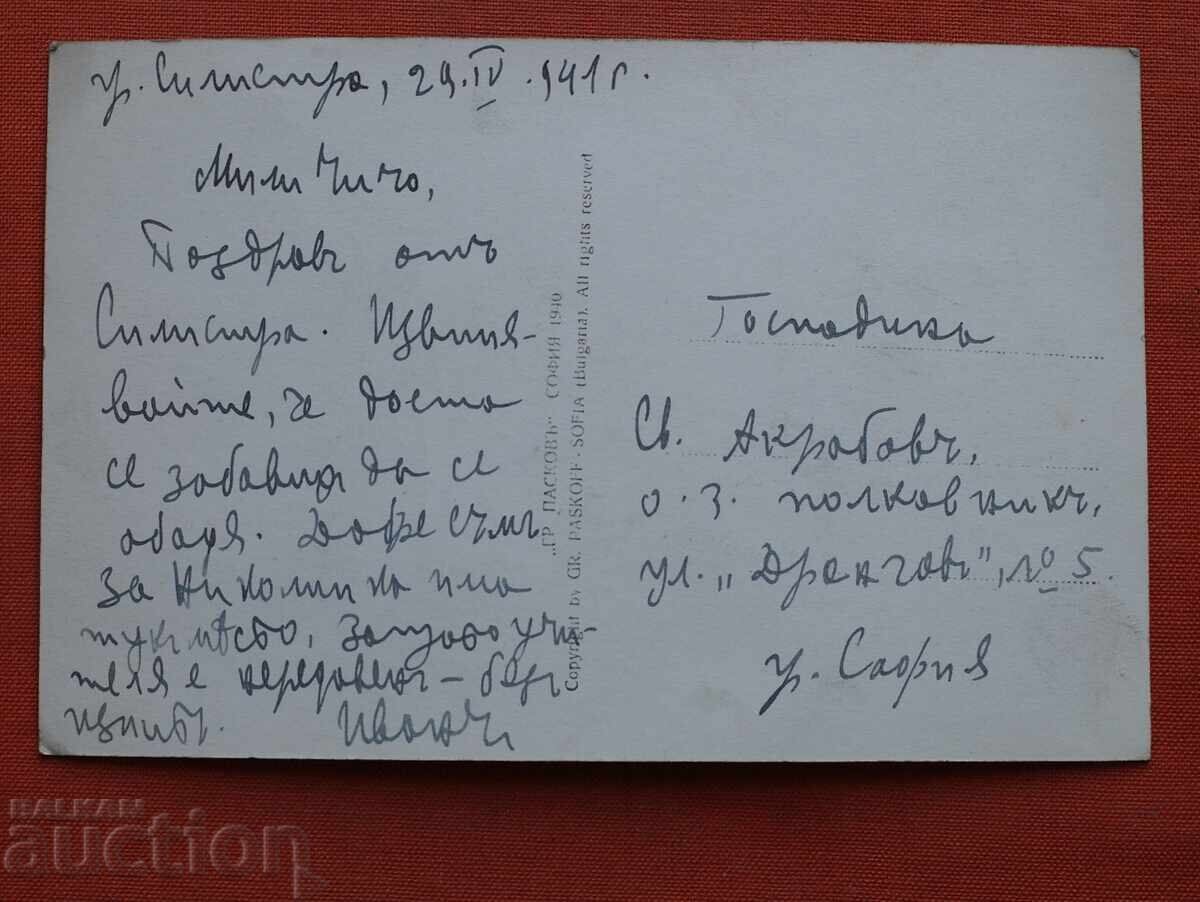 гр. Силистра, 29.IV.941 г.
Мили Чичо,
Поздравъ отъ
Силистра. Извиня-
вайте, че доста
се забавих да се
обадя. Добре съмъ.
За Николинка има
тукъ мѣсто, защото учи-
теля е нередовенъ – безъ
изпитъ. Иванъ
„ГР. ПАСКОВЪ" СОФИЯ 1940
Copyright by GR. PASKOFF - SOFIA (Bulgaria). All rights reserved
Господина
Св. Акрабовъ,
о. з. полковникъ,
ул. „Дранговъ", № 5.
гр. София
БАЛКАН
auction